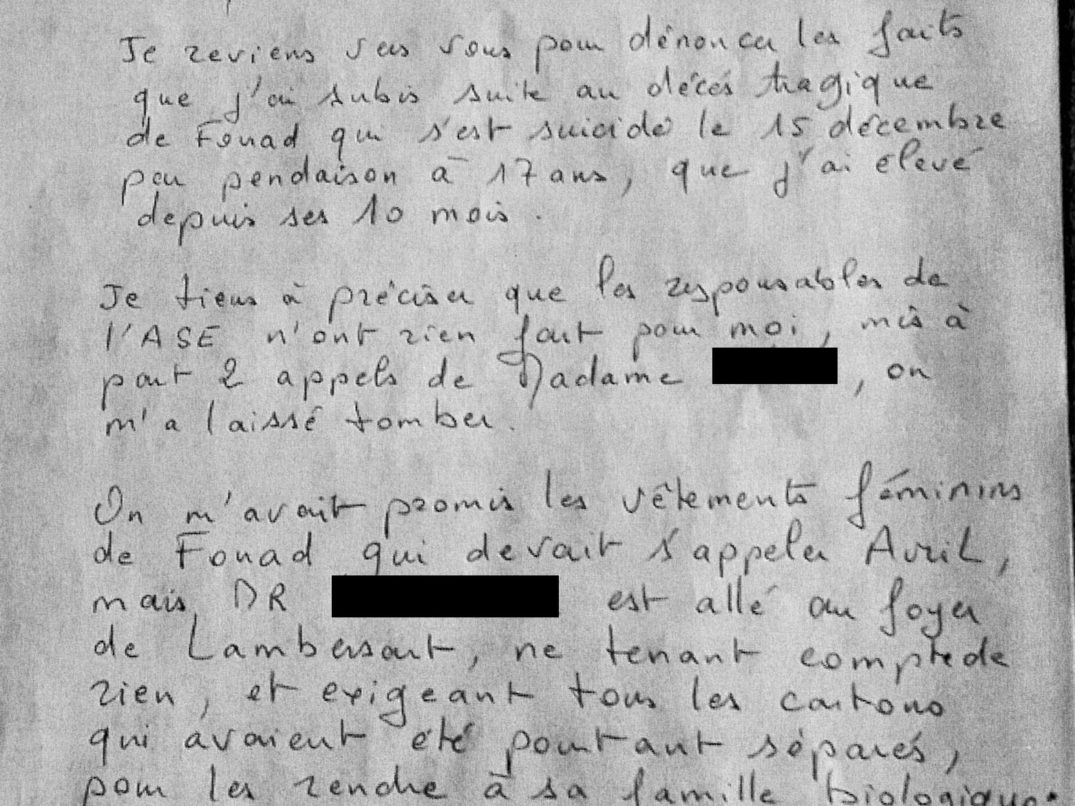 Je reviens vers vous pour dénoncer les faits
que j'ai subis suite au décés tragique
de Fouad qui s'est suicidé le 15 décembre
par pendaison à 17 ans, que j'ai élevé
depuis ses 10 mois.
Je tiens à préciser que les responsables de
l'ASE n'ont rien fait pour moi, mis à
part 2 appels de Madame , on
m'a laissé tomber.
On m'avait promis les vêtements féminins
de Fouad qui devait s'appeler Avril,
mais DR est allé au foyer
de Lambersart, ne tenant compte de
rien, et exigeant tous les cartons
qui avaient été pourtant séparés,
pour les rendre à sa famille biologique.